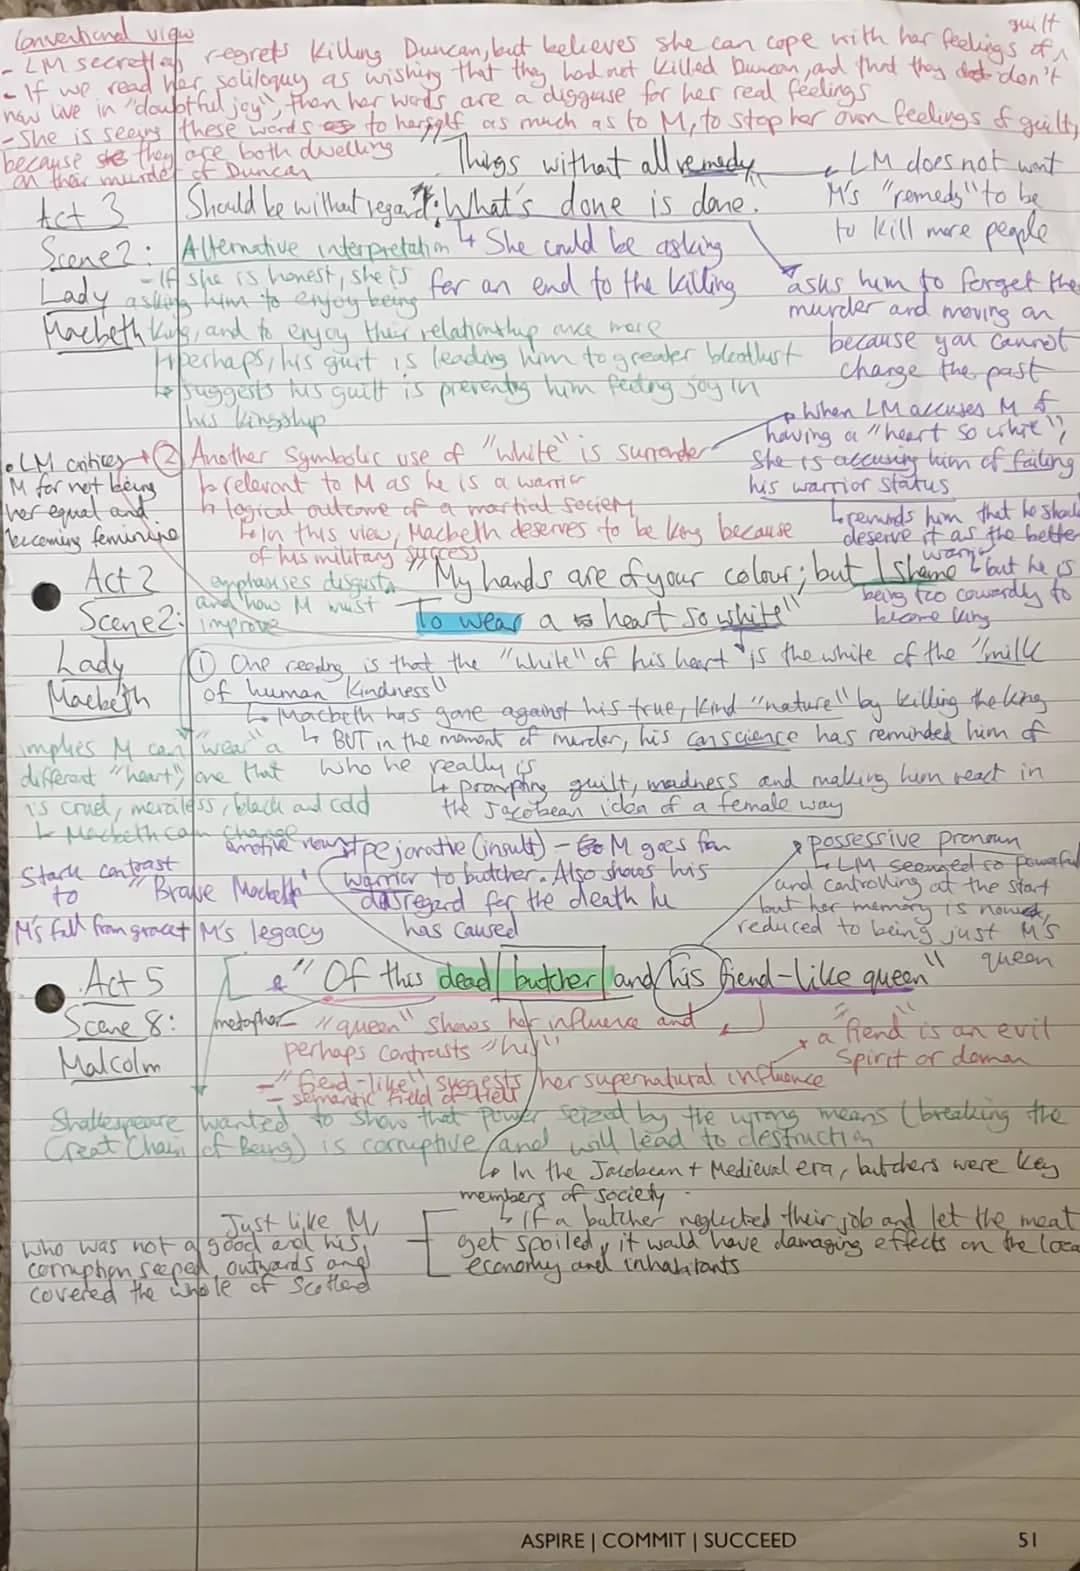 Conventional view
- LM secretly regrets killing Duncan, but believes she can cope with her feelings of guilt
- If we read her soliloquy as wishing that they had not killed Duncan, and that they don't
now live in "doubtful joy", then her words are a disguise for her real feelings
- She is seeing these words to herself as much as to M, to stop her own feelings of guilt,
because they are both dwelling
on their murder of Duncan
"Things without all remedy
Should be without regard: What's done is done."
Act 3
Scene 2:
Lady
Macbeth
LM does not want
M's "remedy" to be
to kill more people
↳ She could be asking
for an end to the killing
asks him to forget the
murder and moving on
because you cannot
change the past
Alternative interpretation
- If she is honest, she is
asking him to enjoy being
King, and to enjoy their relationship once more
↳ perhaps, his guilt is leading him to greater bloodlust
↳ suggests his guilt is preventing him feeling joy in
his kingship
When LM accuses M of
having a "heart so white",
She is accusing him of failing
his warrior status
↳ reminds him that he should
deserve it as the better
warrior
↳ but he is
being too cowardly to
become king
• LM critices
M for not being
her equal and
becoming feminine
② Another symbolic use of "white" is surrender
↳ relevant to M as he is a warrior
↳ logical outcome of a martial society
↳ in this view, Macbeth deserves to be king because
of his military success
Act 2
Scene 2:
Lady
Macbeth
emphasises disgust
and how M must
improve
"My hands are of your colour; but I shame
To wear a heart so white"
① One reading is that the "white" of his heart is the white of the "milk
of human kindness"
↳ Macbeth has gone against his true, kind "nature" by killing the king
↳ BUT in the moment of murder, his conscience has reminded him of
who he really is
↳ prompting guilt, madness and making him react in
the Jacobean idea of a female way
implies M can "wear" a
different "heart", one that
is cruel, merciless, black and cold
↳ Macbeth can change
emotive noun
pejorative (insult) - M goes from
warrior to butcher. Also shows his
disregard for the death he
has caused
Stark contrast
to "Brave Macbeth"
M's fall from grace + M's legacy
possessive pronoun
↳ LM seemed so powerful
and controlling at the start
but her memory is now
reduced to being just M's
queen
Act 5
Scene 8:
Malcolm
"Of this dead butcher and his fiend-like queen"
metaphor
"queen" shows her influence and
perhaps contrasts "his"
a fiend is an evil
spirit or demon
- "fiend-like" suggests her supernatural influence
- semantic field of Hell
Shakespeare wanted to show that power seized by the wrong means (breaking the
Great Chain of Being) is corruptive and will lead to destruction
↳ In the Jacobean + Medieval era, butchers were key
members of society.
↳ If a butcher neglected their job and let the meat
get spoiled, it would have damaging effects on the
economy and inhabitants
Just like M,
who was not good and his
corruption seeped outwards and
covered the whole of Scotland
ASPIRE | COMMIT | SUCCEED
51